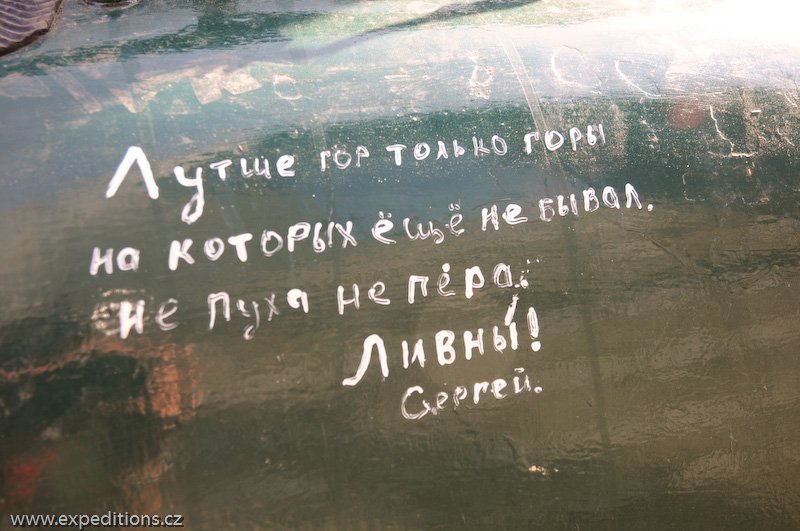 Лутше гор только горы
на которых ёщё не бывал.
не пуха не пёра.
Ливны!
Сергей.
www.expeditions.cz